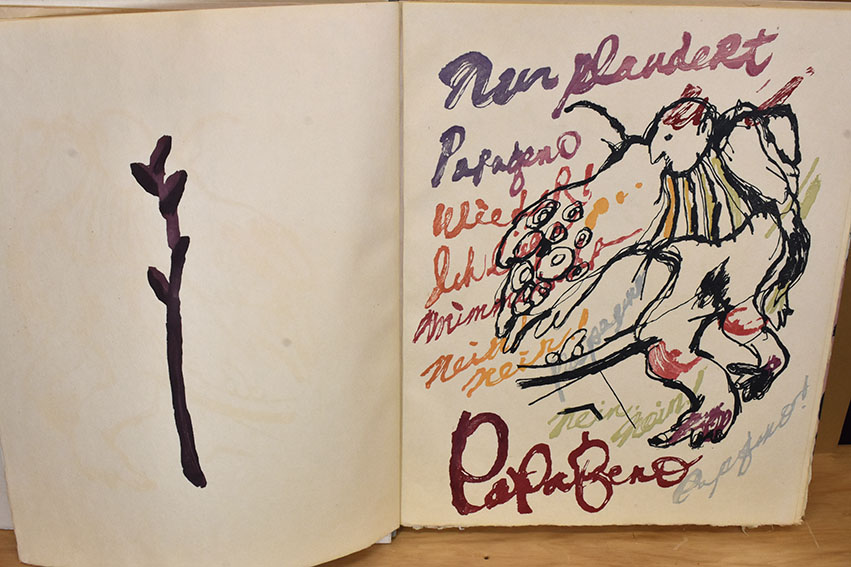 Nun plaudert
Papageno
Wieder!
Ich
nimmer
Nein!
Nein!
Papageno
Nein
Nein!
Papageno
Papageno!